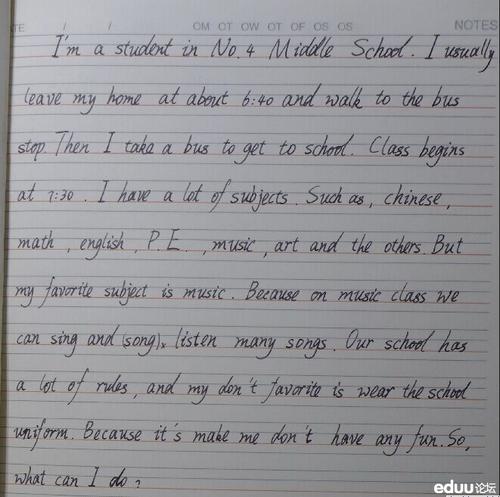 / / OM OT OW OT OF OS OS NOTES
I'm a student in No. 4 Middle School. I usually
leave my home at about 6:40 and walk to the bus
stop. Then I take a bus to get to school. Class begins
at 7:30. I have a lot of subjects. Such as, chinese,
math, english, P.E., music, art and the others. But
my favorite subject is music. Because on music class we
can sing and (song)x listen many songs. Our school has
a lot of rules, and my don't favorite is wear the school
uniform. Because it's make me don't have any fun. So,
what can I do?
eduu论坛